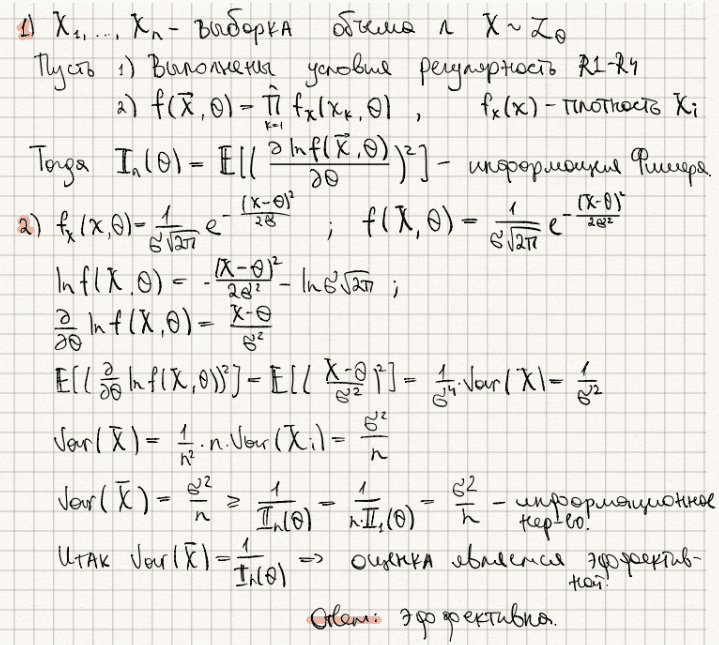 1) X₁, ..., Xₙ - выборка объема n X ~ L_θ
Пусть 1) Выполнены условия регулярность R1-R4
2) f(X⃗, θ) = ∏ₖ₌₁ⁿ fₓ(xₖ, θ) , fₓ(x) - плотность Xᵢ
Тогда Iₙ(θ) = E[(∂ ln f(X⃗, θ)/∂θ)²] - информация Фишера.
2) fₓ(x, θ) = 1/(σ√2π) e^(-(x-θ)²/2σ) ; f(X, θ) = 1/(σ√2π) e^(-(X-θ)²/2σ²)
ln f(X, θ) = -(X-θ)²/2σ² - ln σ√2π ;
∂/∂θ ln f(X, θ) = (X-θ)/σ²
E[(∂/∂θ ln f(X, θ))²] = E[((X-θ)/σ²)²] = 1/σ⁴ · Var(X) = 1/σ²
Var(X̄) = 1/n² · n · Var(Xᵢ) = σ²/n
Var(X̄) = σ²/n ≥ 1/Iₙ(θ) = 1/(n·I₁(θ)) = σ²/n - информационное
нер-во.
Итак Var(X̄) = 1/Iₙ(θ) => оценка является эффектив-
ной.
Ответ: эффективна.